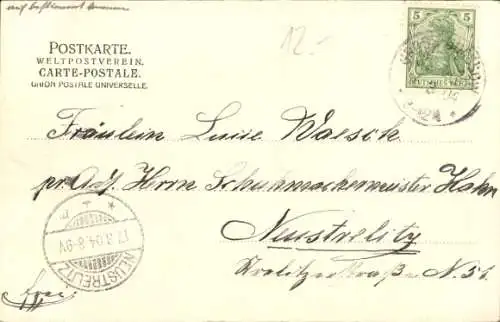 12.-
POSTKARTE.
WELTPOSTVEREIN.
CARTE-POSTALE.
UNION POSTALE UNIVERSELLE.
5 5
DEUTSCHES REICH
Fräulein Luise Waesch
pr. Adr. Herrn Schuhmachermeister Hahn
Neustrelitz
Strelitzerstraße N. 51.
NEUSTRELITZ
17.3.04.8-9V.
frei